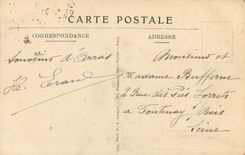 CARTE POSTALE
CORRESPONDANCE
ADRESSE
Souvenir d'Arras
H. Erand
Monsieur et
Madame Bufferne
2 Rue des Prés Forrets
à Fontenay / Bois
Seine